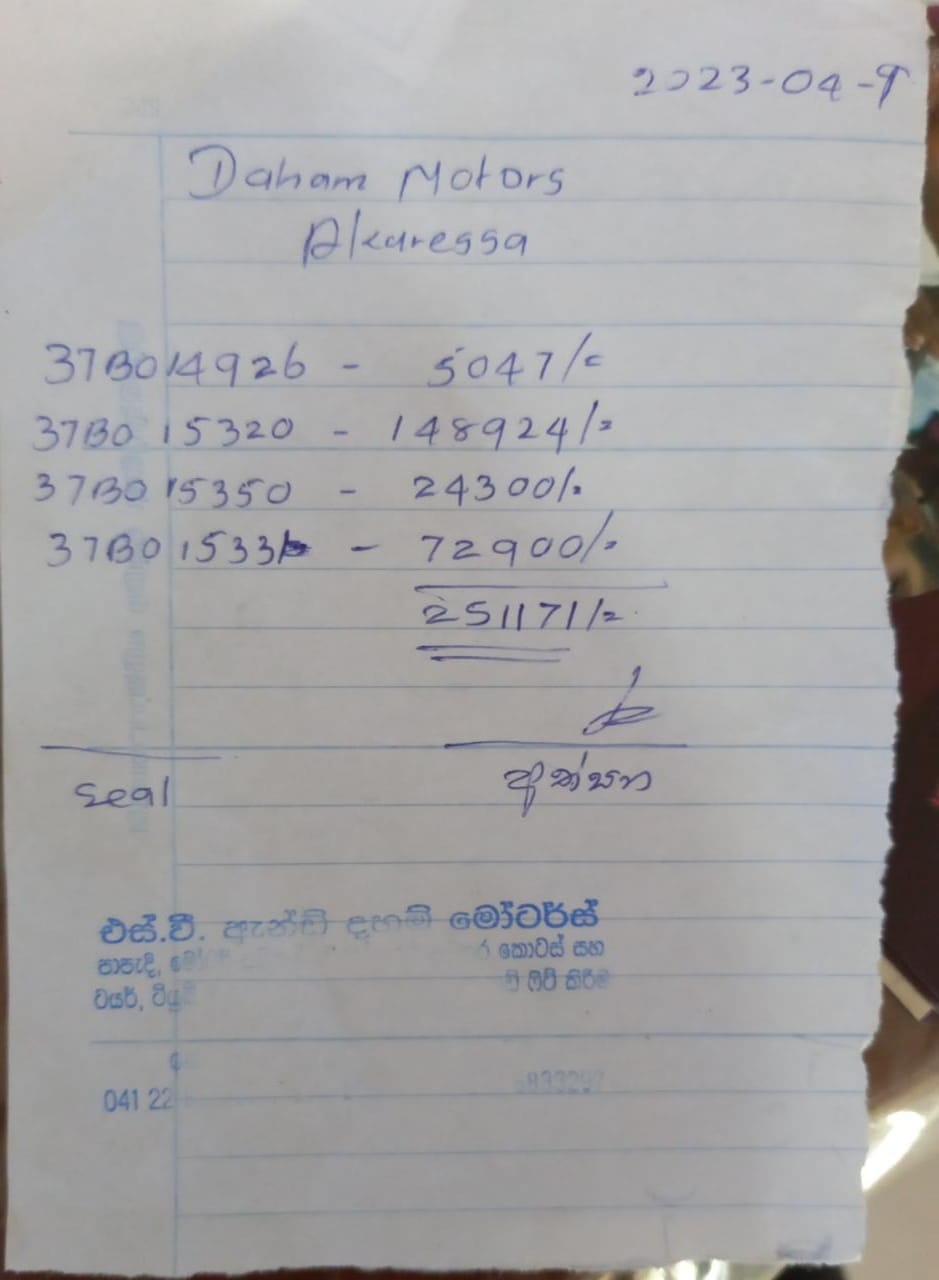 2023-04-9
Daham Motors
Akuressa
37B014926 - 5047/=
37B015320 - 148924/=
37B015350 - 24300/=
37B01533 - 72900/=
251171/=
Seal
අත්සන
එස්.වී. ඇන්ඩ් දහම් මෝටර්ස්
පාපැදි, කොටස් සහ
ටයර්, ෆිට් කිරීම
041 22